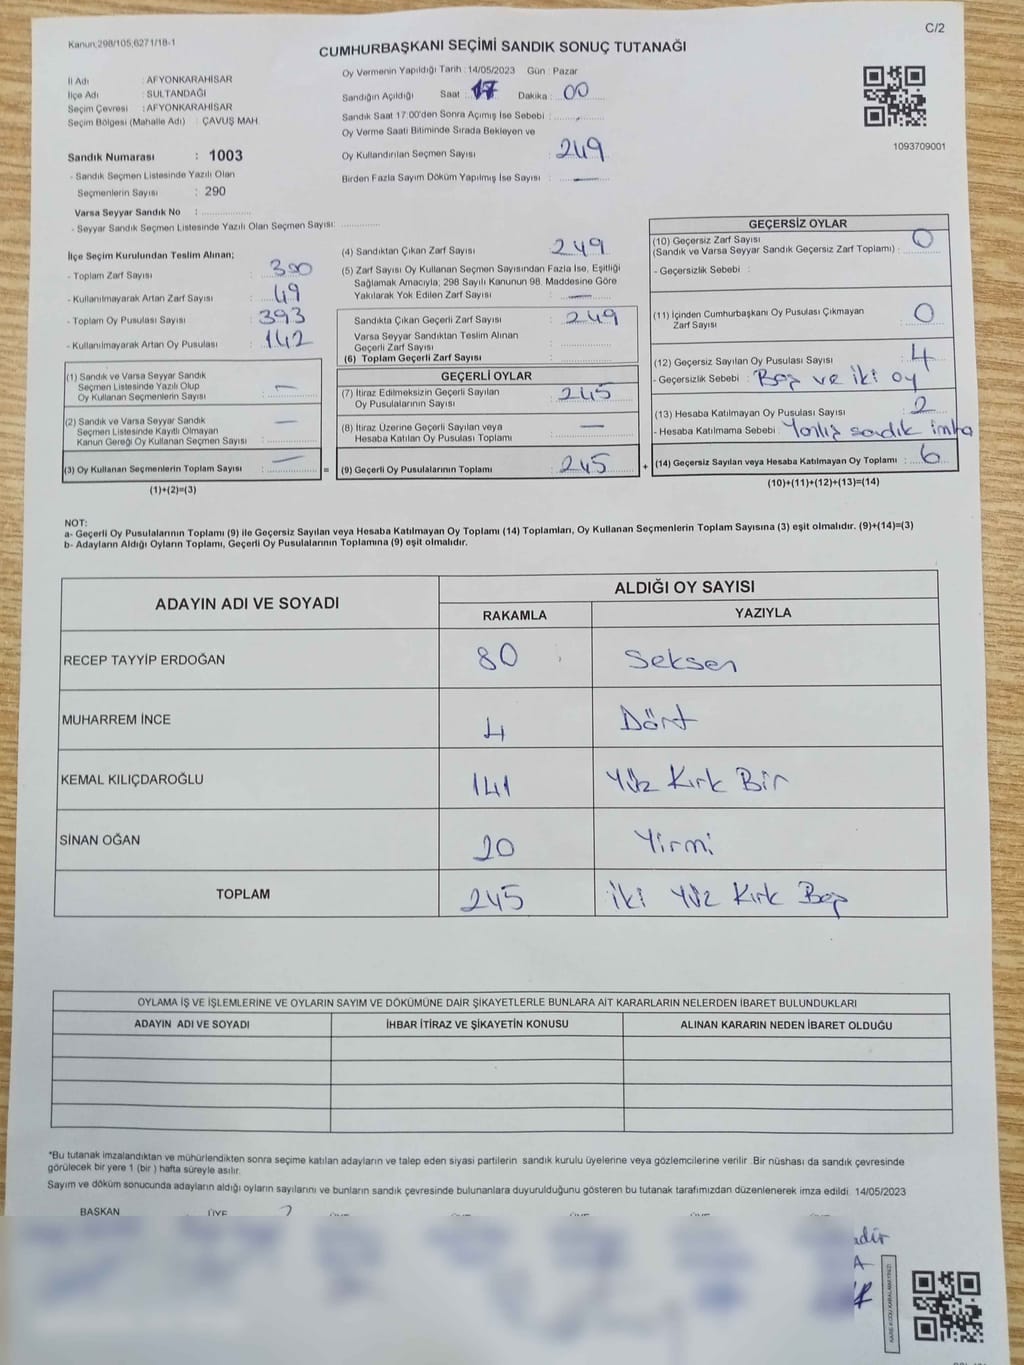 Kanun,298/105,6271/18-1
C/2
CUMHURBAŞKANI SEÇİMİ SANDIK SONUÇ TUTANAĞI
İl Adı : AFYONKARAHİSAR
İlçe Adı : SULTANDAĞI
Seçim Çevresi : AFYONKARAHİSAR
Seçim Bölgesi (Mahalle Adı) : ÇAVUŞ MAH.
Sandık Numarası : 1003
- Sandık Seçmen Listesinde Yazılı Olan
Seçmenlerin Sayısı : 290
Varsa Seyyar Sandık No :
- Seyyar Sandık Seçmen Listesinde Yazılı Olan Seçmen Sayısı:
Oy Vermenin Yapıldığı Tarih : 14/05/2023 Gün : Pazar
Sandığın Açıldığı Saat : 17 Dakika : 00
Sandık Saat 17:00'den Sonra Açımış İse Sebebi :
Oy Verme Saati Bitiminde Sırada Bekleyen ve
Oy Kullandırılan Seçmen Sayısı : 249
Birden Fazla Sayım Döküm Yapılmış İse Sayısı : —
1093709001
İlçe Seçim Kurulundan Teslim Alınan;
- Toplam Zarf Sayısı : 300
- Kullanılmayarak Artan Zarf Sayısı : 49
- Toplam Oy Pusulası Sayısı : 393
- Kullanılmayarak Artan Oy Pusulası : 142
(1) Sandık ve Varsa Seyyar Sandık
Seçmen Listesinde Yazılı Olup
Oy Kullanan Seçmenlerin Sayısı : —
(2) Sandık ve Varsa Seyyar Sandık
Seçmen Listesinde Kayıtlı Olmayan
Kanun Gereği Oy Kullanan Seçmen Sayısı : —
(3) Oy Kullanan Seçmenlerin Toplam Sayısı : —
(1)+(2)=(3)
(4) Sandıktan Çıkan Zarf Sayısı : 249
(5) Zarf Sayısı Oy Kullanan Seçmen Sayısından Fazla İse, Eşitliği
Sağlamak Amacıyla; 298 Sayılı Kanunun 98. Maddesine Göre
Yakılarak Yok Edilen Zarf Sayısı : —
Sandıkta Çıkan Geçerli Zarf Sayısı : 249
Varsa Seyyar Sandıktan Teslim Alınan
Geçerli Zarf Sayısı :
(6) Toplam Geçerli Zarf Sayısı :
GEÇERLİ OYLAR
(7) İtiraz Edilmeksizin Geçerli Sayılan
Oy Pusulalarının Sayısı : 245
(8) İtiraz Üzerine Geçerli Sayılan veya
Hesaba Katılan Oy Pusulası Toplamı : —
= (9) Geçerli Oy Pusulalarının Toplamı : 245 +
GEÇERSİZ OYLAR
(10) Geçersiz Zarf Sayısı
(Sandık ve Varsa Seyyar Sandık Geçersiz Zarf Toplamı) : 0
- Geçersizlik Sebebi :
(11) İçinden Cumhurbaşkanı Oy Pusulası Çıkmayan
Zarf Sayısı : 0
(12) Geçersiz Sayılan Oy Pusulası Sayısı : 4
- Geçersizlik Sebebi : Boş ve iki oy
(13) Hesaba Katılmayan Oy Pusulası Sayısı : 2
- Hesaba Katılmama Sebebi : Yanlış sandık imha
(14) Geçersiz Sayılan veya Hesaba Katılmayan Oy Toplamı : 6
(10)+(11)+(12)+(13)=(14)
NOT:
a- Geçerli Oy Pusulalarının Toplamı (9) ile Geçersiz Sayılan veya Hesaba Katılmayan Oy Toplamı (14) Toplamları, Oy Kullanan Seçmenlerin Toplam Sayısına (3) eşit olmalıdır. (9)+(14)=(3)
b- Adayların Aldığı Oyların Toplamı, Geçerli Oy Pusulalarının Toplamına (9) eşit olmalıdır.
ADAYIN ADI VE SOYADI
ALDIĞI OY SAYISI
RAKAMLA YAZIYLA
RECEP TAYYİP ERDOĞAN 80 Seksen
MUHARREM İNCE 4 Dört
KEMAL KILIÇDAROĞLU 141 Yüz Kırk Bir
SİNAN OĞAN 20 Yirmi
TOPLAM 245 İki Yüz Kırk Beş
OYLAMA İŞ VE İŞLEMLERİNE VE OYLARIN SAYIM VE DÖKÜMÜNE DAİR ŞİKAYETLERLE BUNLARA AİT KARARLARIN NELERDEN İBARET BULUNDUKLARI
ADAYIN ADI VE SOYADI İHBAR İTİRAZ VE ŞİKAYETİN KONUSU ALINAN KARARIN NEDEN İBARET OLDUĞU
*Bu tutanak imzalandıktan ve mühürlendikten sonra seçime katılan adayların ve talep eden siyasi partilerin sandık kurulu üyelerine veya gözlemcilerine verilir .Bir nüshası da sandık çevresinde
görülecek bir yere 1 (bir ) hafta süreyle asılır.
Sayım ve döküm sonucunda adayların aldığı oyların sayılarını ve bunların sandık çevresinde bulunanlara duyurulduğunu gösteren bu tutanak tarafımızdan düzenlenerek imza edildi. 14/05/2023
BAŞKAN ÜYE